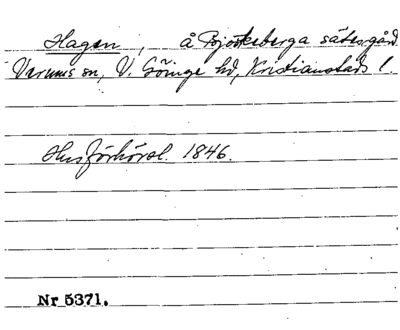 Hagen, å Bjärkeberga sätesgård
Verums sn, V. Göinge hd, Kristianstads l.
Husförhörsl. 1846.
Nr 5371.